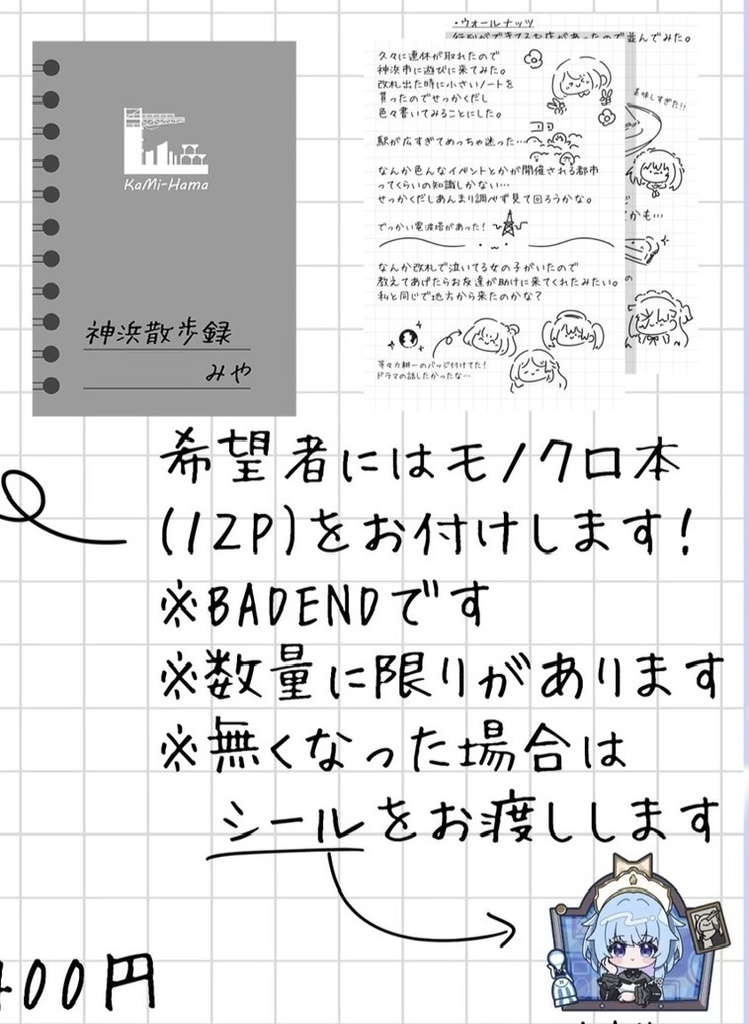 KaMi-Hama
神浜散歩録
みや
・ウォールナッツ
行列ができてるお店があったので並んでみた。
美味しすぎた!!
かも…
の
久々に連休が取れたので
神浜市に遊びに来てみた。
改札出た時に小さいノートを
貰ったのでせっかくだし
色々書いてみることにした。
駅が広すぎてめっちゃ迷った…
なんか色んなイベントとかが開催される都市
ってくらいの知識しかない…
せっかくだしあんまり調べず見て回ろうかな。
でっかい電波塔があった!
なんか改札で泣いてる女の子がいたので
教えてあげたらお友達が助けに来てくれたみたい。
私と同じで地方から来たのかな?
等々力耕一のバッジ付けてた!
ドラマの話したかったな…
希望者にはモノクロ本
(12P)をお付けします!
※BADENDです
※数量に限りがあります
※無くなった場合は
シールをお渡しします
400円